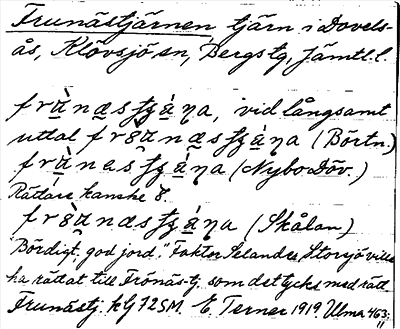 Frunästjärnen tjärn i Dovels-
ås, Klövsjö sn, Bergs tg, Jämtl. l.
frùnæsʃʒæ̀ŋa, vid långsamt
uttal frʚnæsʃʒæ̀ŋa (Börtn.)
frùnasʃʒæ̀ŋa (Nybo Döv.)
Rättare kanske ʚ.
frʚ̀næsʃʒæ̀ŋa (Skålan)
"Bördigt, god jord." Faktor Selander Storsjö ville
ha rättat till Frönäs-tj. som det tycks med rätt
Frunästj. kG 72 SM. E. Terner 1919. Ulma 463:
11